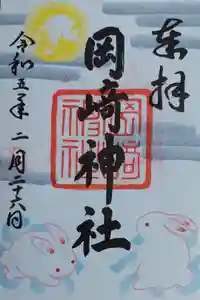 奉拝
岡崎神社
令和五年 二月二十六日